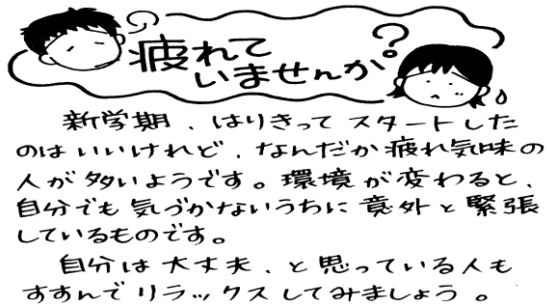 疲れて
いませんか?
新学期、はりきってスタートした
のはいいけれど、なんだか疲れ気味の
人が多いようです。環境が変わると、
自分でも気づかないうちに意外と緊張
しているものです。
自分は大丈夫、と思っている人も
すすんでリラックスしてみましょう。